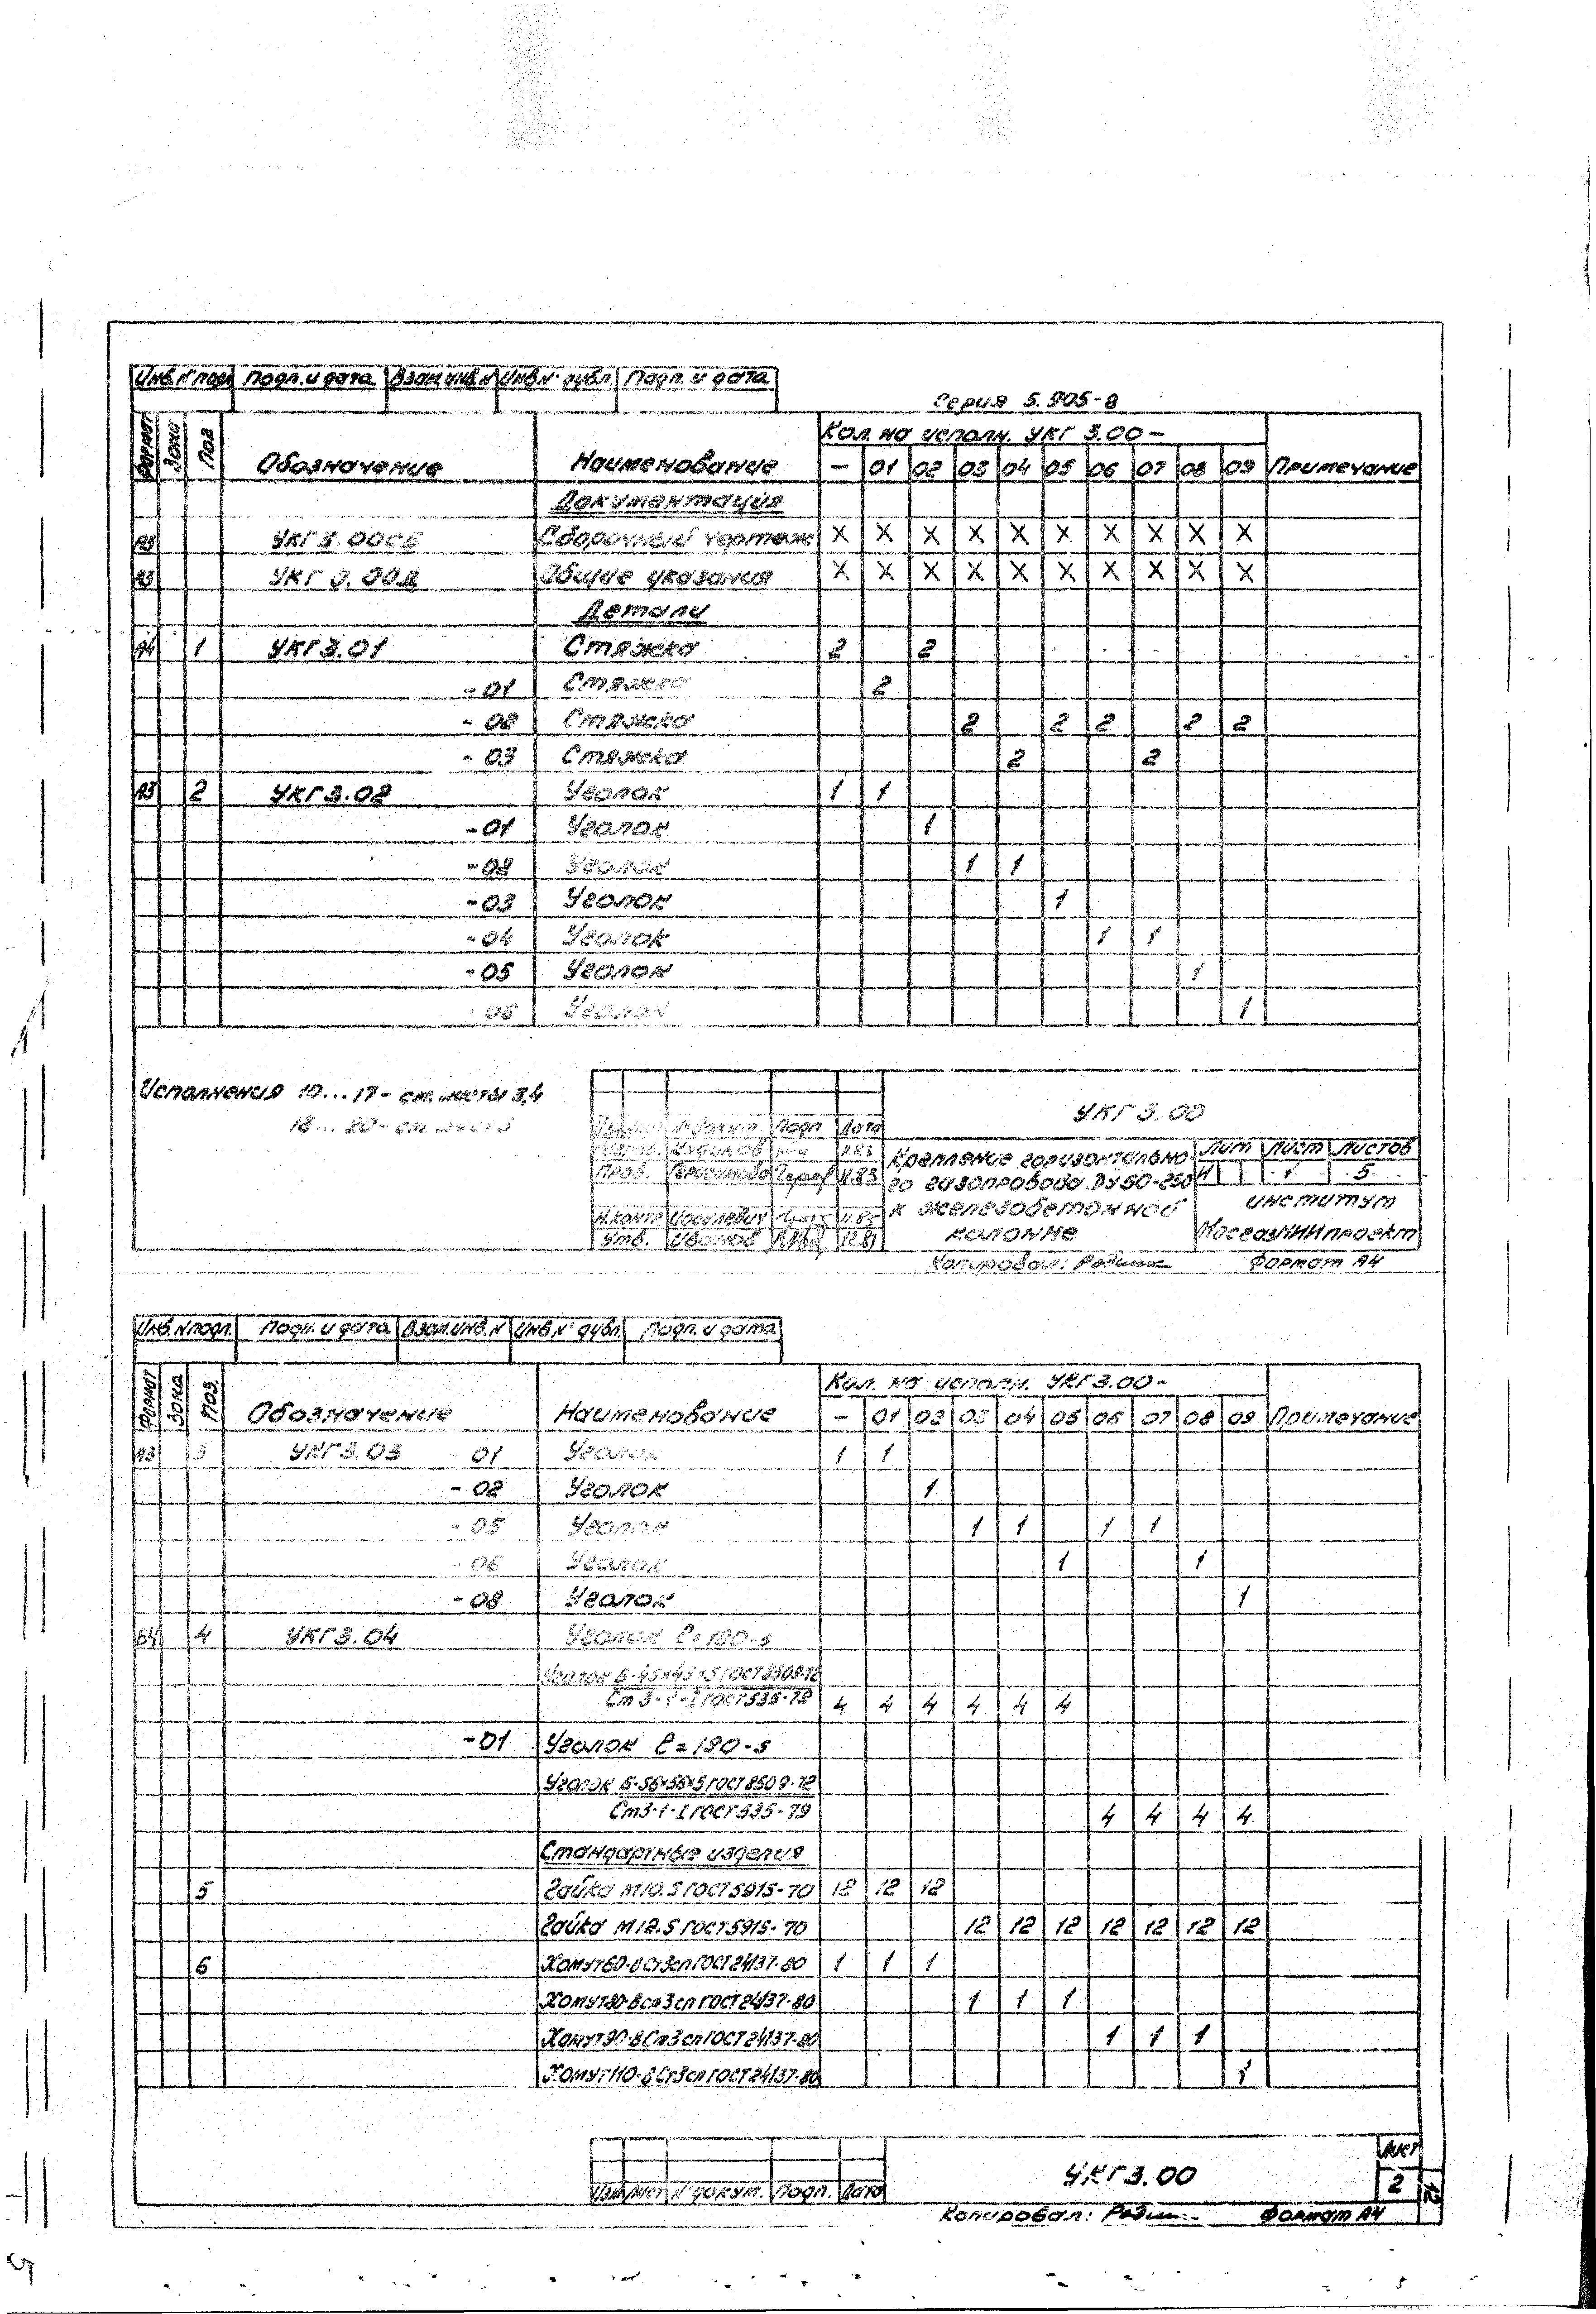 Инв.N подл. Подп. и дата Взам.инв.N Инв.N° дубл. Подп. и дата
Серия 5.905-8
Формат Зона Поз Обозначение Наименование Кол. на исполн. УКГ 3.00- Примечание
- 01 02 03 04 05 06 07 08 09
Документация
А3 УКГ 3.00СБ Сборочный чертеж X X X X X X X X X X
А3 УКГ 0.00Д Общие указания X X X X X X X X X X
Детали
А4 1 УКГ3.01 Стяжка 2 2
-01 Стяжка 2
-02 Стяжка 2 2 2 2 2
-03 Стяжка 2 2
А3 2 УКГ3.02 Уголок 1 1
-01 Уголок 1
-02 Уголок 1 1
-03 Уголок 1
-04 Уголок 1 1
-05 Уголок 1
-06 Уголок 1
Исполнения 10...17- см. листы 3,4
18... 20- см. лист 5
УКГ 3.00
N докум. Подп Дата
11.83
Пров. Герасимова 11.83
Н.контр Иоселевич 11.83
Утв. Иванов
Крепление горизонтально-
го газопровода Ду 50-250
к железобетонной
колонне
Лит Лист Листов
И 1 5
институт
МосгазНИИпроект
Копировал: Формат А4
Инв.N подл. Подп. и дата Взам.инв.N Инв.N° дубл. Подп. и дата
Формат Зона Поз. Обозначение Наименование Кол. на исполн. УКГ3.00- Примечание
- 01 02 03 04 05 06 07 08 09
А3 3 УКГ3.03 - 01 Уголок 1 1
- 02 Уголок 1
- 05 Уголок 1 1 1 1
- 06 Уголок 1 1
- 08 Уголок 1
Б4 4 УКГ3.04 Уголок ℓ=190-s
Уголок Б-45×45×5 ГОСТ 8509-72
Ст 3-1-I ГОСТ 535-79 4 4 4 4 4 4
-01 Уголок ℓ=190-s
Уголок Б-56×56×5 ГОСТ 8509-72
Ст3-1-I ГОСТ 535-79 4 4 4 4
Стандартные изделия
5 Гайка М10.5 ГОСТ 5915-70 12 12 12
Гайка М12.5 ГОСТ 5915-70 12 12 12 12 12 12 12
6 Хомут 60-В Ст3сп ГОСТ 24137-80 1 1 1
Хомут 80-В ст3сп ГОСТ 24137-80 1 1 1
Хомут 90-В Ст3сп ГОСТ 24137-80 1 1 1
Хомут 110-В Ст3сп ГОСТ 24137-80 1
Изм Лист N докум. Подп. Дата
УКГ3.00
Лист
2
12
Копировал: Формат А4